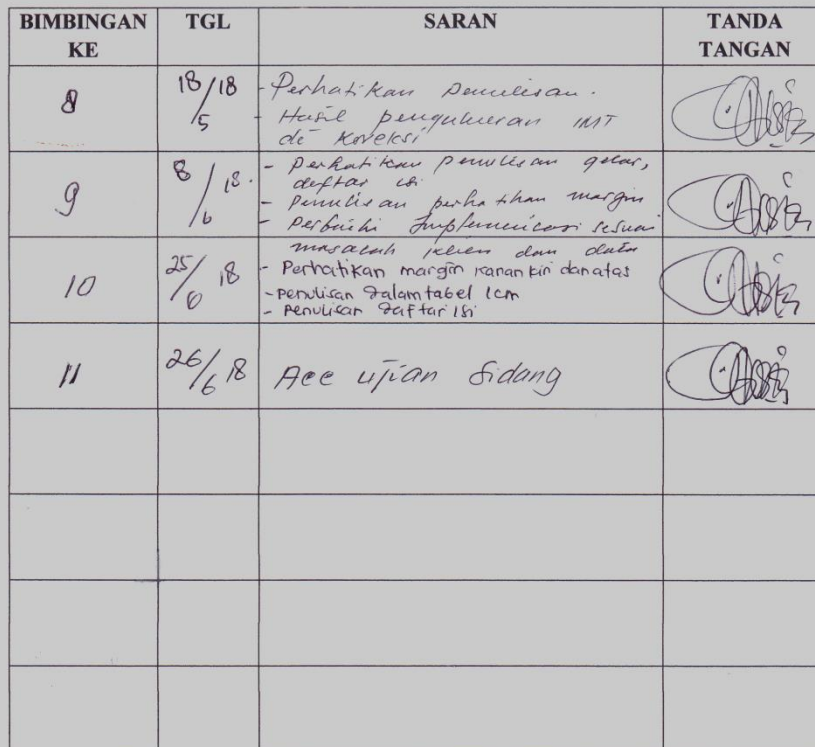 BIMBINGAN KE TGL SARAN TANDA TANGAN
8 18/5 18 - Perhatikan penulisan.
- Hasil pengukuran IMT
di koreksi
9 8/6 18. - Perhatikan penulisan gelar,
daftar isi
- Penulisan perhatikan margin
- Perbaiki Implementasi sesuai
masalah klien dan data
10 25/6 18 - Perhatikan margin kanan kiri dan atas
- penulisan dalam tabel 1cm
- penulisan daftar isi
11 26/6 18 Acc ujian sidang